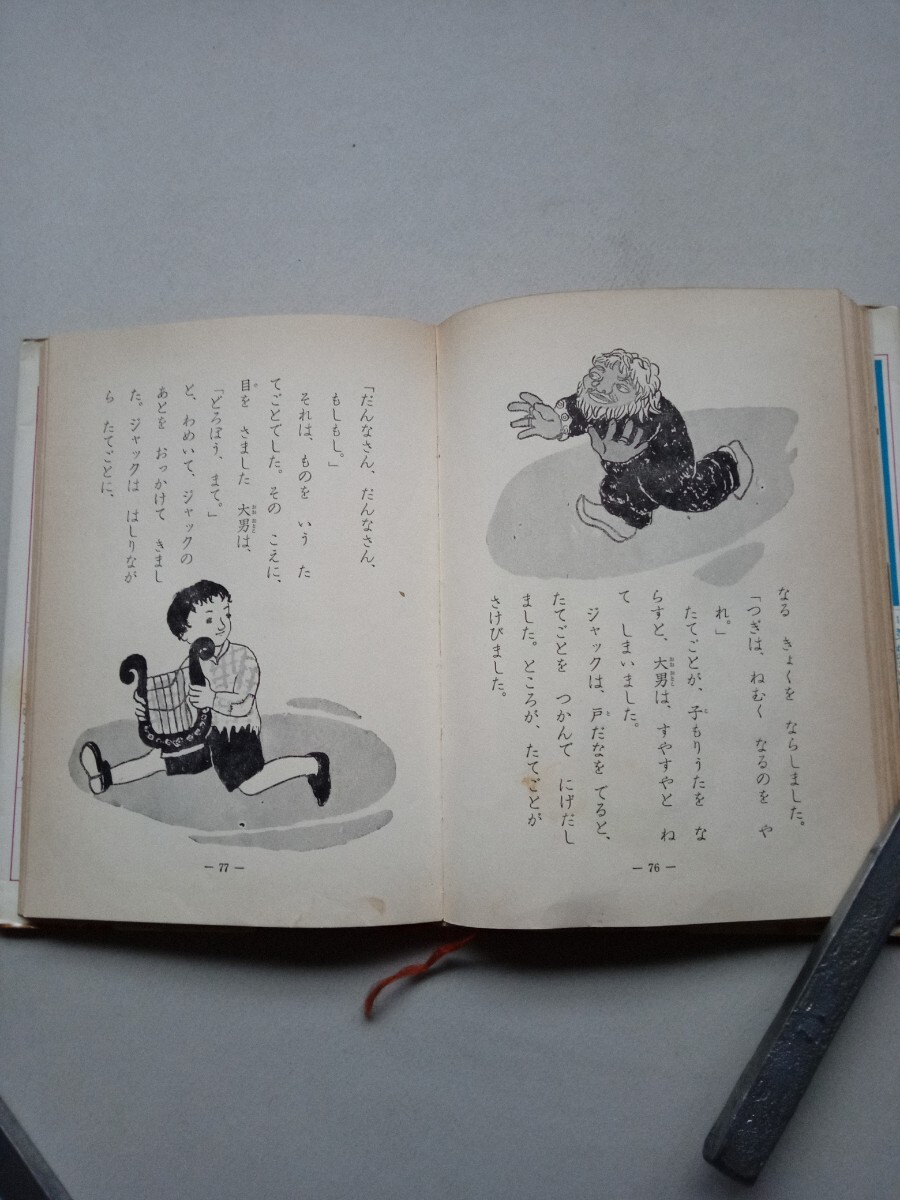 なる きょくを ならしました。
「つぎは、ねむく なるのを や
れ。」
たてごとが、子もりうたを な
らすと、大男は、すやすやと ね
て しまいました。
ジャックは、戸だなを でると、
たてごとを つかんで にげだし
ました。ところが、たてごとが
さけびました。
— 76 —
「だんなさん、だんなさん、
もしもし。」
それは、ものを いう た
てごとでした。その こえに、
目を さました 大男は、
「どろぼう、まて。」
と、わめいて、ジャックの
あとを おっかけて きまし
た。ジャックは はしりなが
ら たてごとに、
— 77 —